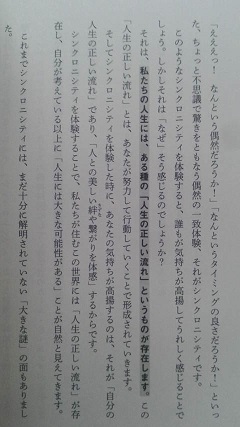 「えええっ！　なんという偶然だろうか！」「なんというタイミングの良さだろうか！」といっ
た、ちょっと不思議で驚きをともなう偶然の一致体験、それがシンクロニシティです。
このようなシンクロニシティを体験すると、誰もが気持ちが高揚してうれしく感じることで
しょう。しかしそれは「なぜ」そう感じるのでしょうか？
それは、私たちの人生には、ある種の「人生の正しい流れ」というものが存在します。この
「人生の正しい流れ」とは、あなたが努力して行動していくことで形成されていきます。
そしてシンクロニシティを体験した時に、あなたの気持ちが高揚するのは、それが「自分の
人生の正しい流れ」であり、「人との美しい絆や繋がりを体感」するからです。
シンクロニシティを体験することで、私たちが住むこの世界には「人生の正しい流れ」が存
在し、自分が考えている以上に「人生には大きな可能性がある」ことが自然と見えてきます。
これまでシンクロニシティには、まだ十分に解明されていない「大きな謎」の面もありまし
た。